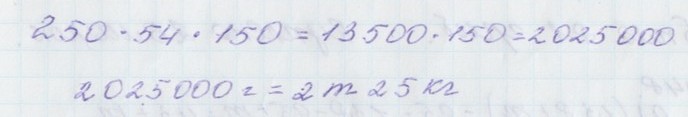 250·54·150=13500·150=2025000
2025000г=2т 25кг